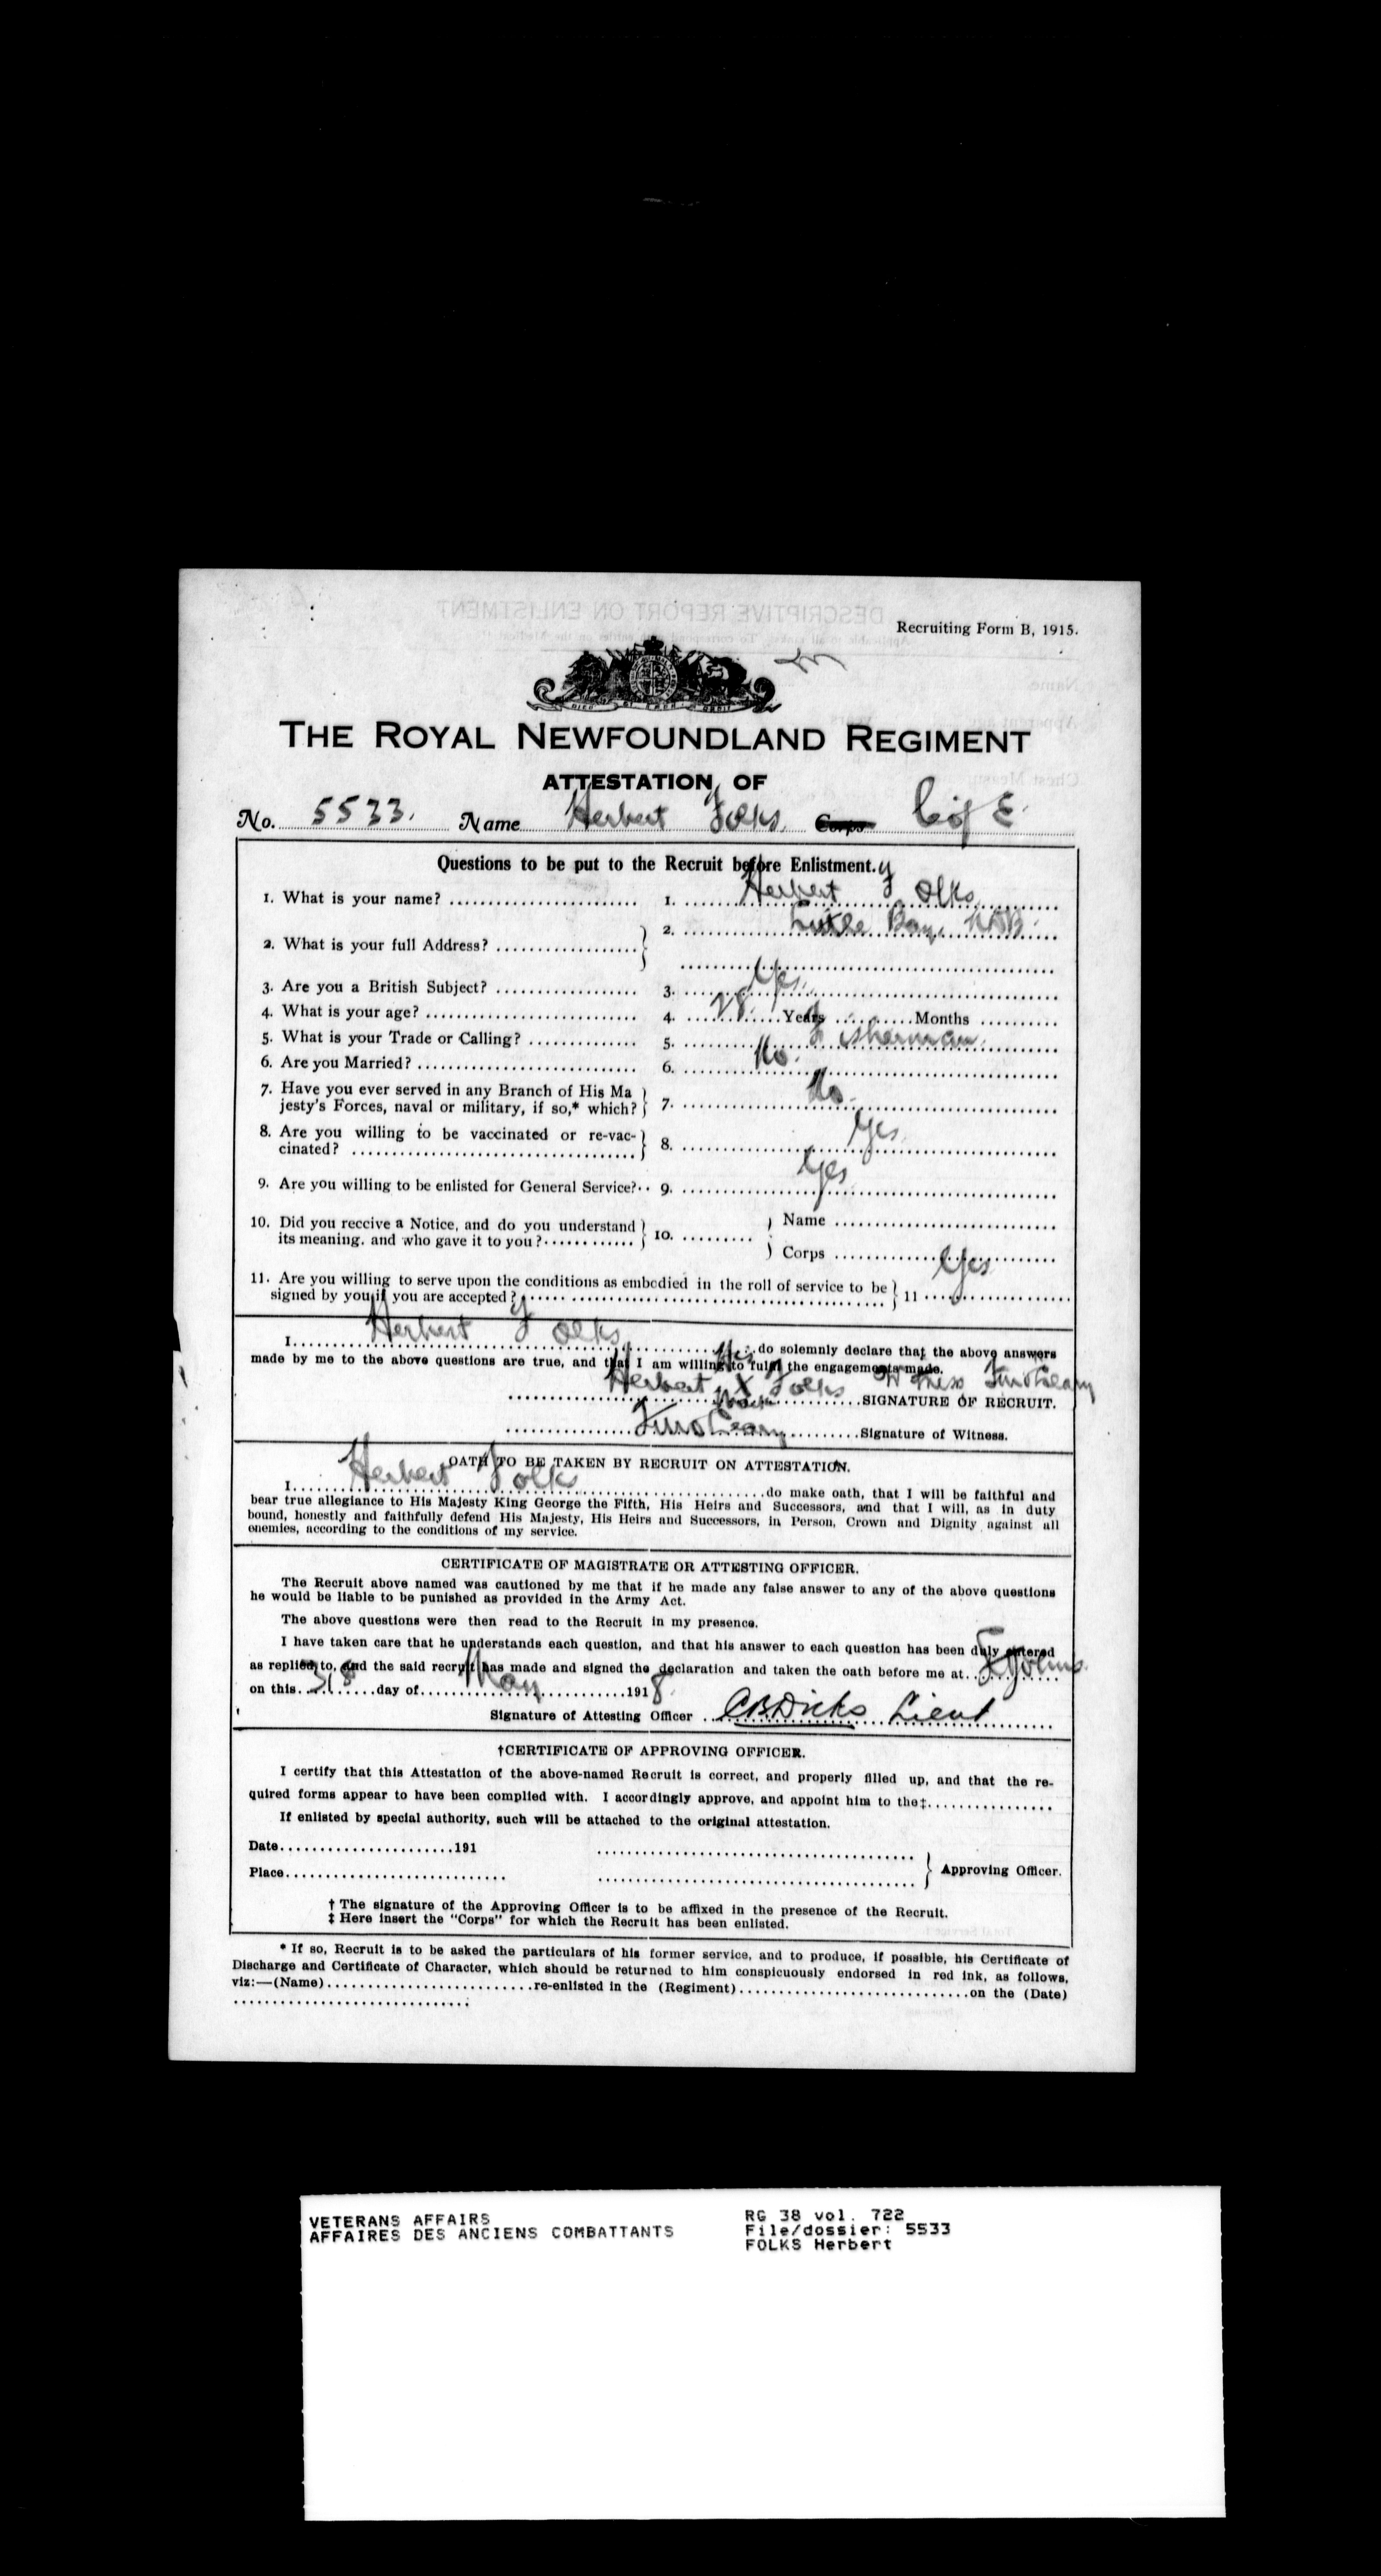 Recruiting Form B, 1915.
THE ROYAL NEWFOUNDLAND REGIMENT
ATTESTATION OF
No. 5533. Name Herbert Folks. Corps
Questions to be put to the Recruit before Enlistment.
1. What is your name? 1. Herbert Folks
2. What is your full Address? 2. Little Bay, NDB.
3. Are you a British Subject? 3. Yes.
4. What is your age? 4. Years Months
5. What is your Trade or Calling? 5. Fisherman.
6. Are you Married? 6. No.
7. Have you ever served in any Branch of His Ma
jesty's Forces, naval or military, if so,* which? 7. No.
8. Are you willing to be vaccinated or re-vac-
cinated? 8. Yes
9. Are you willing to be enlisted for General Service? 9. Yes
10. Did you receive a Notice, and do you understand
its meaning. and who gave it to you? 10. Name
Corps
11. Are you willing to serve upon the conditions as embodied in the roll of service to be
signed by you if you are accepted? 11 Yes
I Herbert Folks do solemnly declare that the above answers
made by me to the above questions are true, and that I am willing to fulfil the engagements made.
Herbert his X mark Folks Witness SIGNATURE OF RECRUIT.
Signature of Witness.
OATH TO BE TAKEN BY RECRUIT ON ATTESTATION.
I Herbert Folks do make oath, that I will be faithful and
bear true allegiance to His Majesty King George the Fifth, His Heirs and Successors, and that I will, as in duty
bound, honestly and faithfully defend His Majesty, His Heirs and Successors, in Person, Crown and Dignity against all
enemies, according to the conditions of my service.
CERTIFICATE OF MAGISTRATE OR ATTESTING OFFICER.
The Recruit above named was cautioned by me that if he made any false answer to any of the above questions
he would be liable to be punished as provided in the Army Act.
The above questions were then read to the Recruit in my presence.
I have taken care that he understands each question, and that his answer to each question has been duly entered
as replied to, and the said recruit has made and signed the declaration and taken the oath before me at St Johns
on this day of May 1918
Signature of Attesting Officer CBDicks Lieut
†CERTIFICATE OF APPROVING OFFICER.
I certify that this Attestation of the above-named Recruit is correct, and properly filled up, and that the re-
quired forms appear to have been complied with. I accordingly approve, and appoint him to the‡
If enlisted by special authority, such will be attached to the original attestation.
Date 191
Place Approving Officer.
† The signature of the Approving Officer is to be affixed in the presence of the Recruit.
‡ Here insert the "Corps" for which the Recruit has been enlisted.
* If so, Recruit is to be asked the particulars of his former service, and to produce, if possible, his Certificate of
Discharge and Certificate of Character, which should be returned to him conspicuously endorsed in red ink, as follows,
viz:—(Name) re-enlisted in the (Regiment) on the (Date)
VETERANS AFFAIRS
AFFAIRES DES ANCIENS COMBATTANTS
RG 38 vol. 722
File/dossier: 5533
FOLKS Herbert